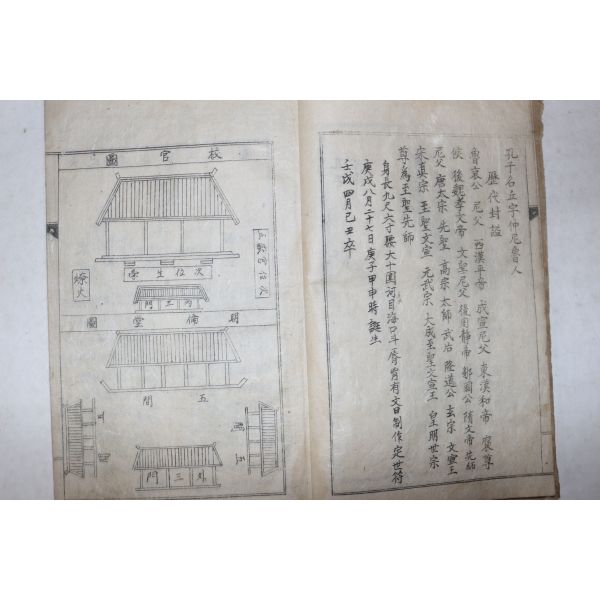 孔子名丘字仲尼魯人
歷代封諡
魯哀公 尼父 西漢平帝 成宣尼父 東漢和帝 褒尊
侯 後魏孝文帝 文聖尼父 後周靜帝 鄒國公 隋文帝 先師
尼父 唐太宗 先聖 高宗 太師 武后 隆道公 玄宗 文宣王
宋眞宗 至聖文宣 元武宗 大成至聖文宣王 皇明世宗
尊爲至聖先師
身長九尺六寸腰大十圍河目海口斗脣胷有文曰制作定世符
庚戌八月二十七日庚子甲申時誕生
壬戌四月己丑卒
校官圖
次位生學
燎火
內三門
明倫堂圖
五間
外三門